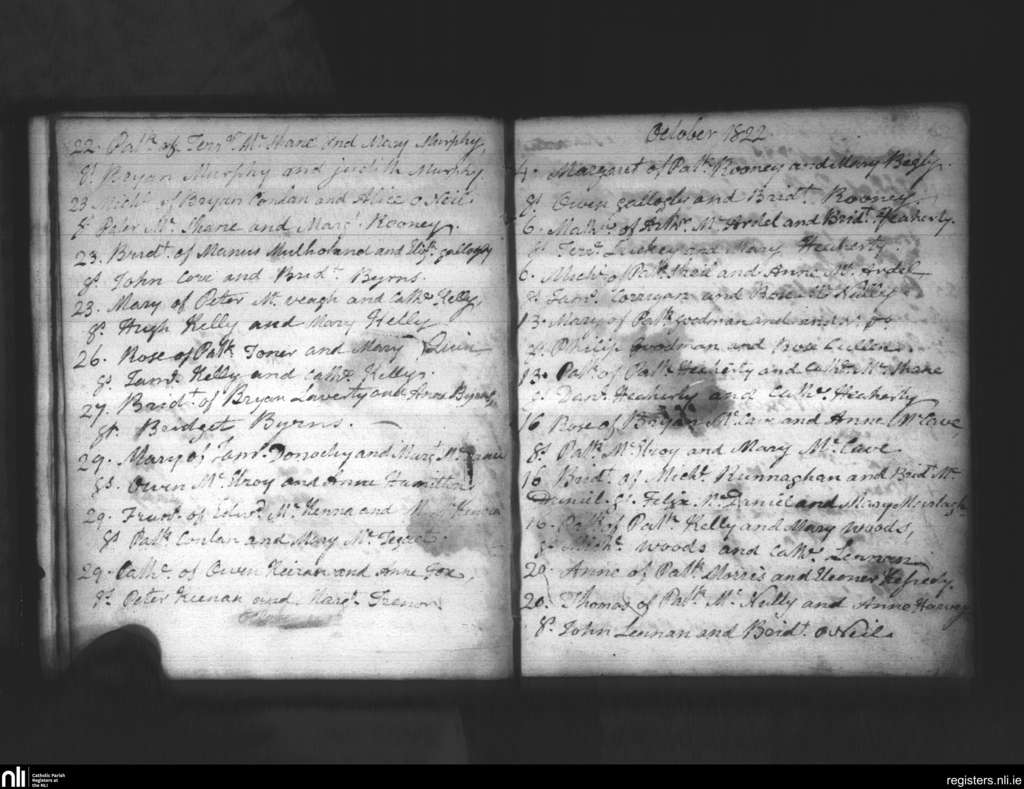 22. Patk. of Terrce. Mc. Shane and Mary Murphy,
gs. Bryan Murphy and judith Murphy
23 Michl. of Bryan Conlan and Alice o Neil
gs. Peter Mc. Shane and Margt. Rooney.
23. Bridt. of Manus Mulholand and gallogly
gs. John Core and Bridt. Byrns.
23. Mary of Peter Mc. veagh and Cathe. Kelly,
gs. Hugh Kelly and Mary Kelly
26. Rose of Patk. Toner and Mary Quin
gs. Jams. Kelly and Cathe. Kelly.
27. Bridt. of Bryan Laverty and Anne Byrns,
gt. Bridget Byrns. —
29. Mary of Jams. Donachy and Margt.
gs. Owen Mc. Ilroy and Anne Hamilton
29. of Edwd. Mc. Kenna and
gs. Patk. Conlan and Mary
29. Cathe. of Owen Keiran and Anne Fox,
gs. Peter Keenan and Margt.
October 1822.
4. Margaret of Patk. Rooney and Mary Begly.
gs. Owen gallogly and Bridt. Rooney.
6. of Arthr. Mc. Ardel and Bridt. Heaherty.
gs. and Mary Heaherty
6. Michl. of Patk. and Anne Mc. Ardel
gs. Jams. Corrigan and Rose Mc Nally
13. Mary of Patk. goodman and
gs. Philip Goodman and Rose Cullen.
13. Patk. of Patk. Heaherty and Cathe. Mc. Shane
gs. Danl. Heaherty and Cathe. Heaherty
16 Rose of Bryan Mc. Cave and Anne Mc Cave,
gs. Patk. Mc. Ilroy and Mary Mc. Cave
16 Bridt. of Michl. Runnaghan and Bridt. Mc.
Daniel. gs. Felix Mc. Daniel and Mary Murtagh
16. Patk. of Patk. Kelly and Mary woods,
gs. woods and Cathe. Lennon
20. Anne of Patk. Morris and Eleoner
20. Thomas of Patk. Mc. Nelly and Anne Harvey
gs. John Lennan and Bridt. O Neil.
nli
Catholic Parish
Registers at
the NLI
registers.nli.ie